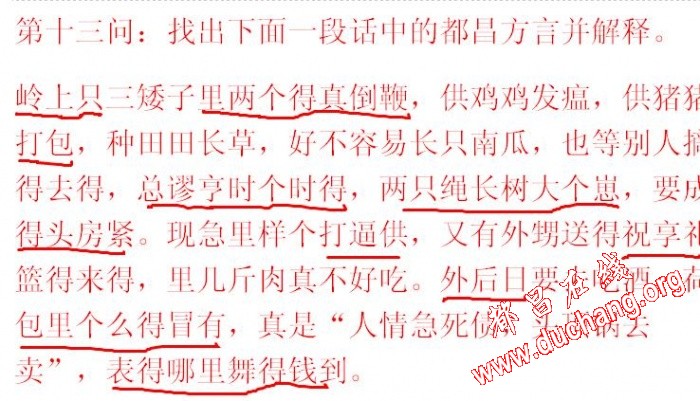 第十三问：找出下面一段话中的都昌方言并解释。
岭上只三矮子里两个得真倒鞭，供鸡鸡发瘟，供猪猪
打包，种田田长草，好不容易长只南瓜，也等别人摘
得去得，总谬亨时个时得，两只绳长树大个崽，要成
得头房紧。现急里样个打逼供，又有外甥送得祝享礼
篮得来得，里几斤肉真不好吃。外后日要去吃酒，荷
包里个么得冒有，真是“人情急死债，
卖”，表得哪里舞得钱到。
都昌在线
www.duchang.org